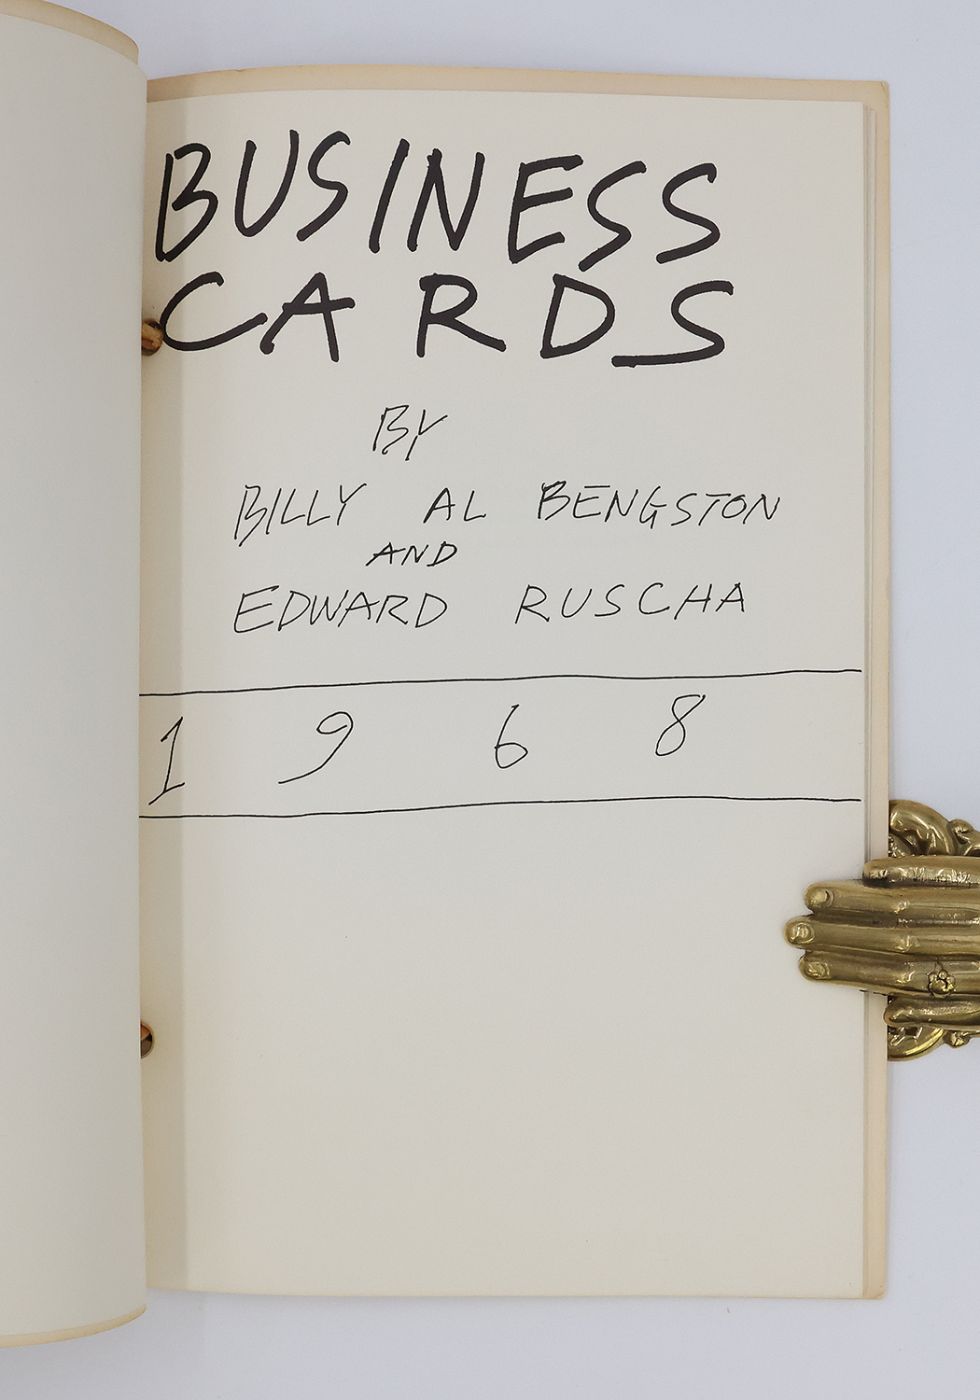 BUSINESS
CARDS
BY
BILLY AL BENGSTON
AND
EDWARD RUSCHA
1968